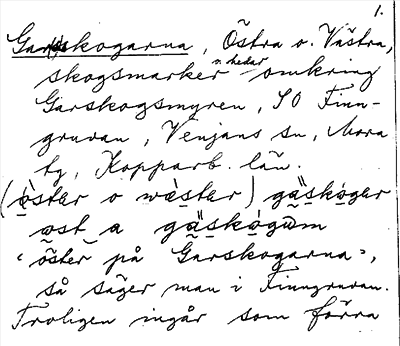 1.
Garskogarna, Östra o. Västra,
skogsmarker o. hedar omkring
Garskogsmyren, SO Finn-
gruvan, Venjans sn, Mora
tg, Kopparb. län.
(òster o wæ̀ster) gä̀skóger
ost a gä̀skógωm
"öster på Garskogarna",
så säger man i Finngruvan.
Troligen ingår som förra